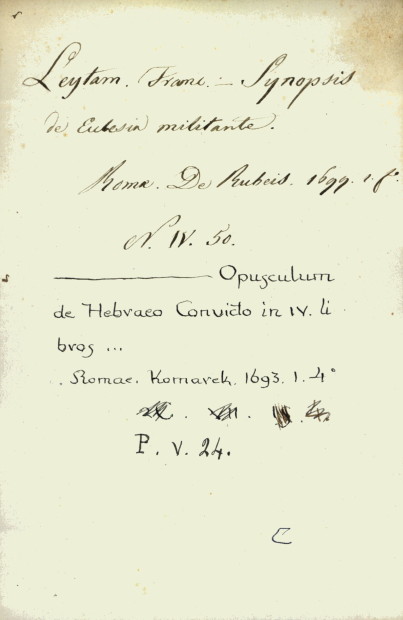 Leytam. Franc. — Synopsis
de Eclesia militante.
Romae. De Rubeis. 1699. 1. fº.
N. IV. 50.
——— Opusculum
de Hebraeo Convicto in IV. li
bros ...
. Romae. Komarek. 1693. 1. 4º
P. V. 24.